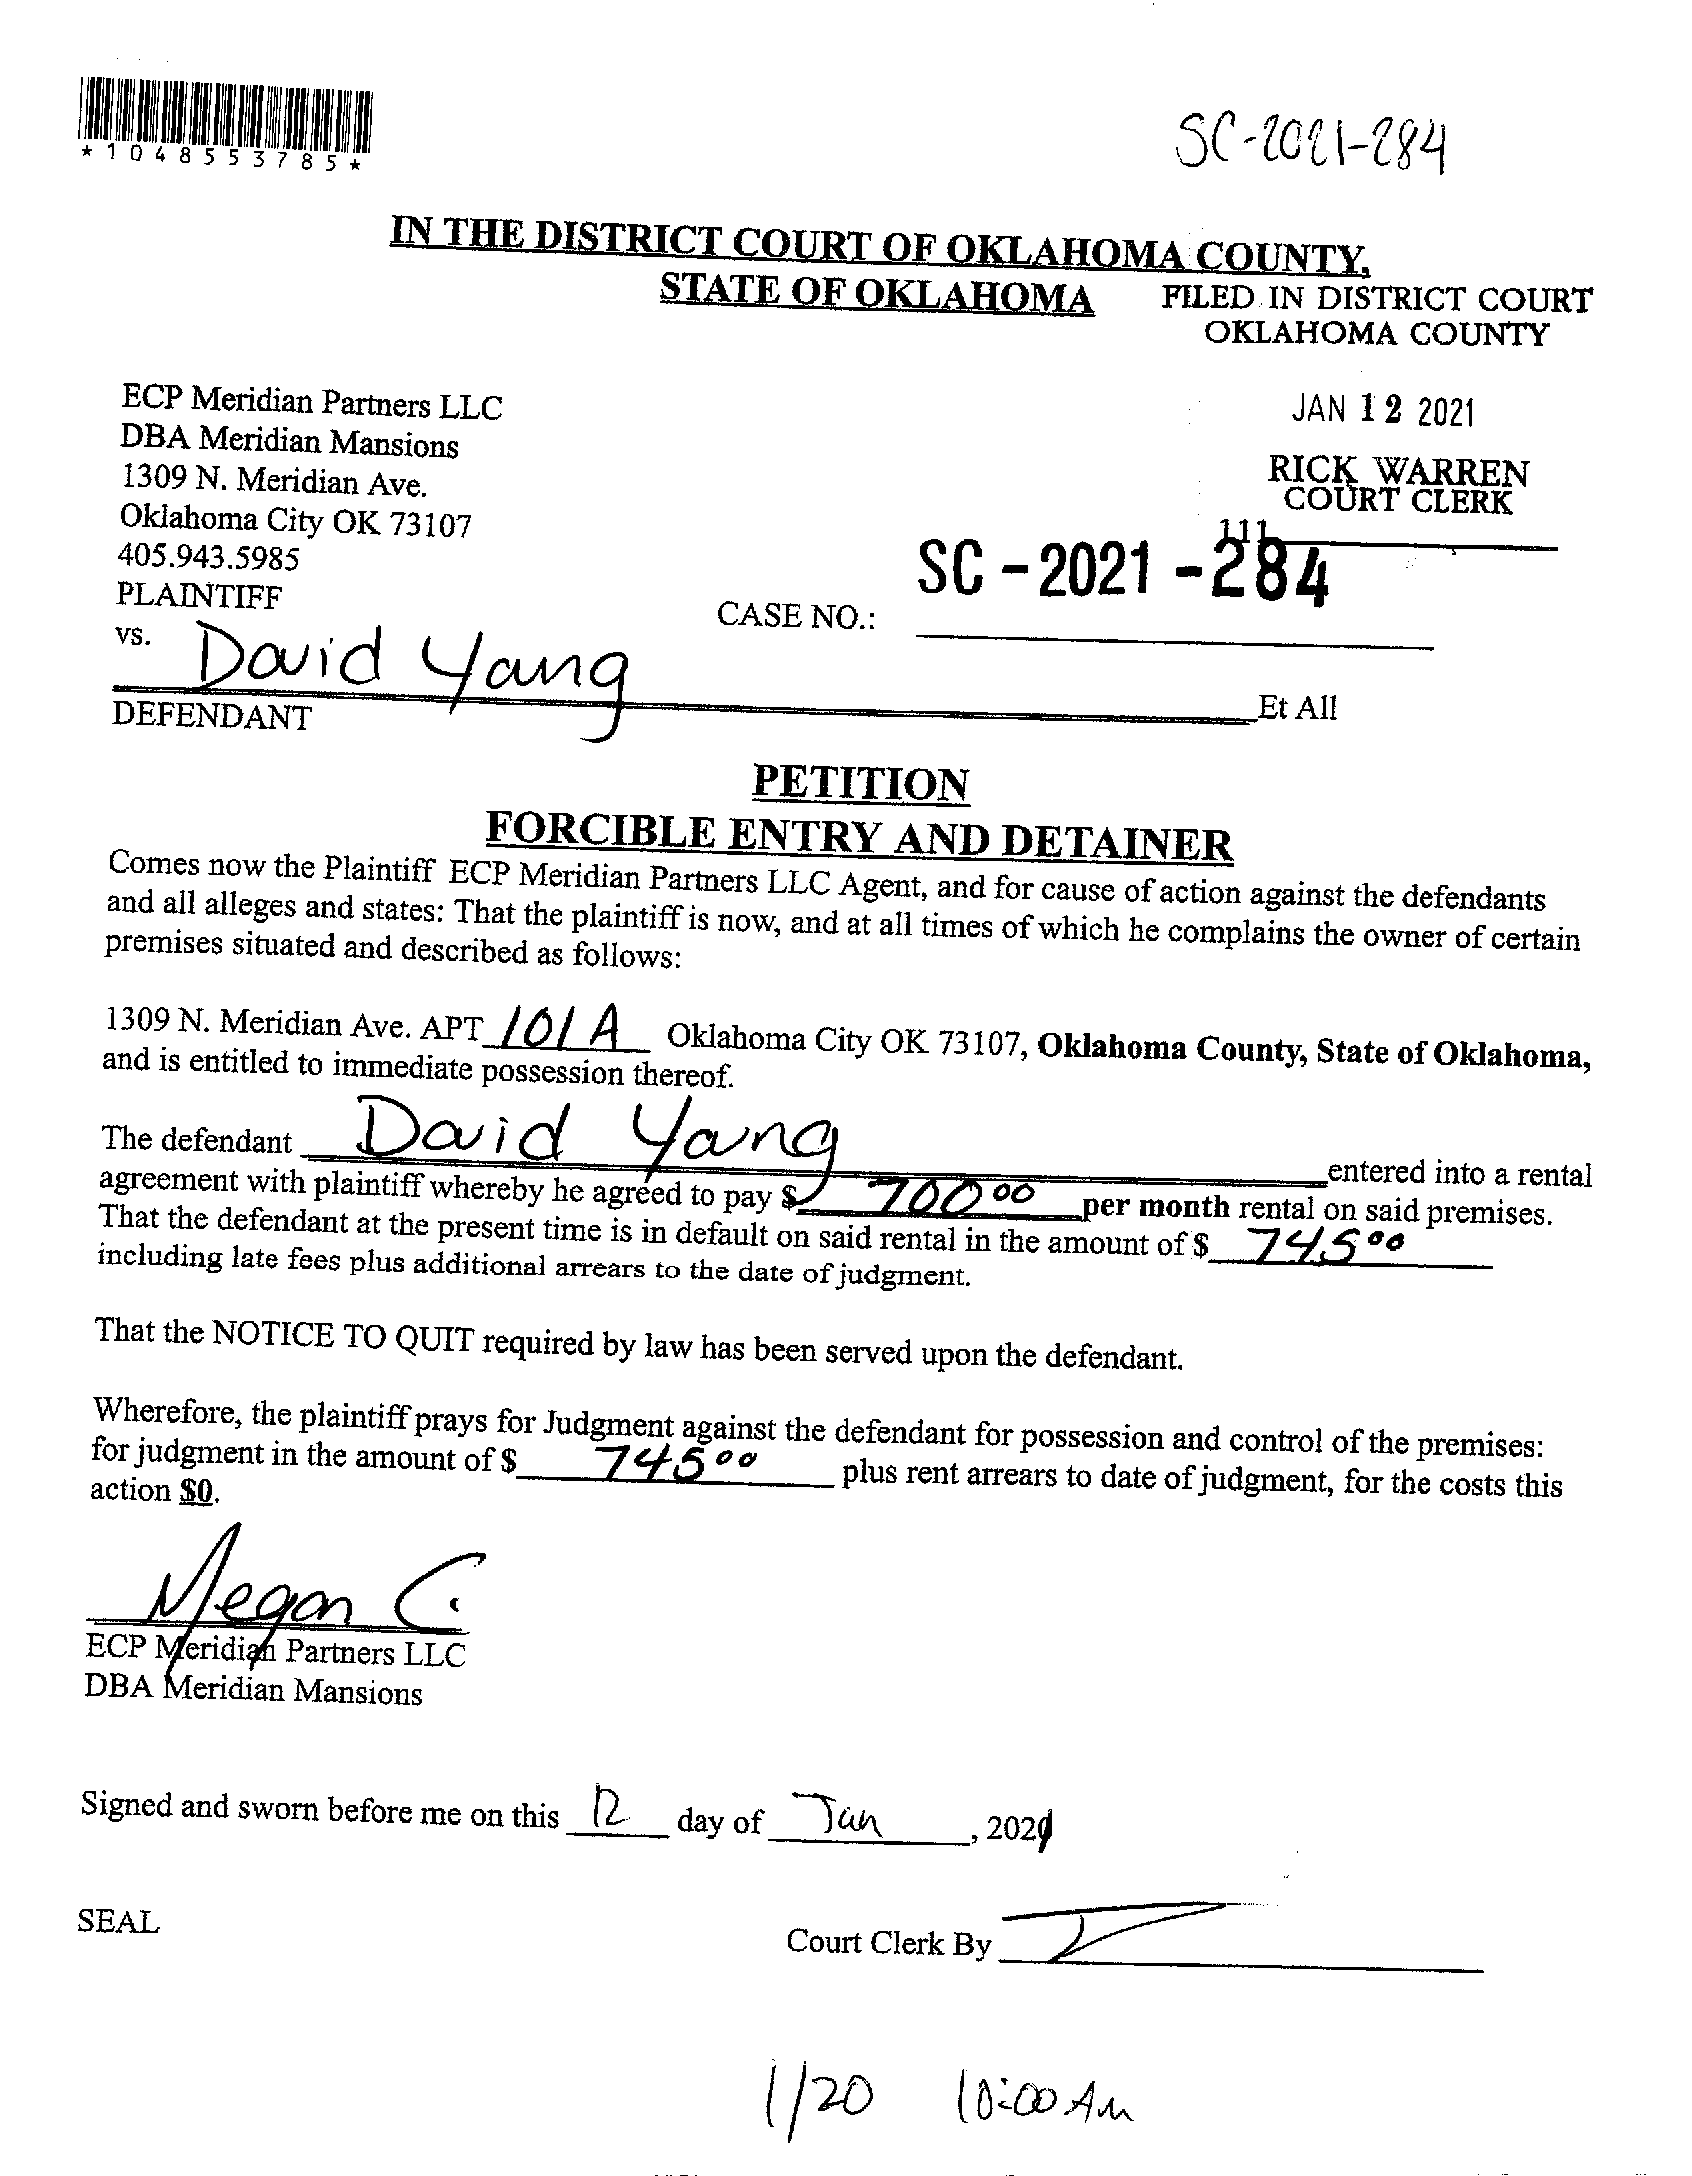 *1048553785*
SC-2021-284
IN THE DISTRICT COURT OF OKLAHOMA COUNTY,
STATE OF OKLAHOMA
FILED IN DISTRICT COURT
OKLAHOMA COUNTY
JAN 12 2021
RICK WARREN
COURT CLERK
111
ECP Meridian Partners LLC
DBA Meridian Mansions
1309 N. Meridian Ave.
Oklahoma City OK 73107
405.943.5985
PLAINTIFF
vs.
CASE NO.: SC-2021-284
David Yang Et All
DEFENDANT
PETITION
FORCIBLE ENTRY AND DETAINER
Comes now the Plaintiff ECP Meridian Partners LLC Agent, and for cause of action against the defendants
and all alleges and states: That the plaintiff is now, and at all times of which he complains the owner of certain
premises situated and described as follows:
1309 N. Meridian Ave. APT 101A Oklahoma City OK 73107, Oklahoma County, State of Oklahoma,
and is entitled to immediate possession thereof.
The defendant David Yang entered into a rental
agreement with plaintiff whereby he agreed to pay $ 700 00 per month rental on said premises.
That the defendant at the present time is in default on said rental in the amount of $ 745 00
including late fees plus additional arrears to the date of judgment.
That the NOTICE TO QUIT required by law has been served upon the defendant.
Wherefore, the plaintiff prays for Judgment against the defendant for possession and control of the premises:
for judgment in the amount of $ 745 00 plus rent arrears to date of judgment, for the costs this
action $0.
Megan C.
ECP Meridian Partners LLC
DBA Meridian Mansions
Signed and sworn before me on this 12 day of Jan, 2021
SEAL
Court Clerk By
1/20 10:00 AM